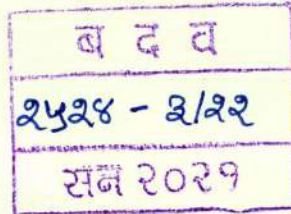 ब द व
२५२४ - ३/२२
सन २०२१